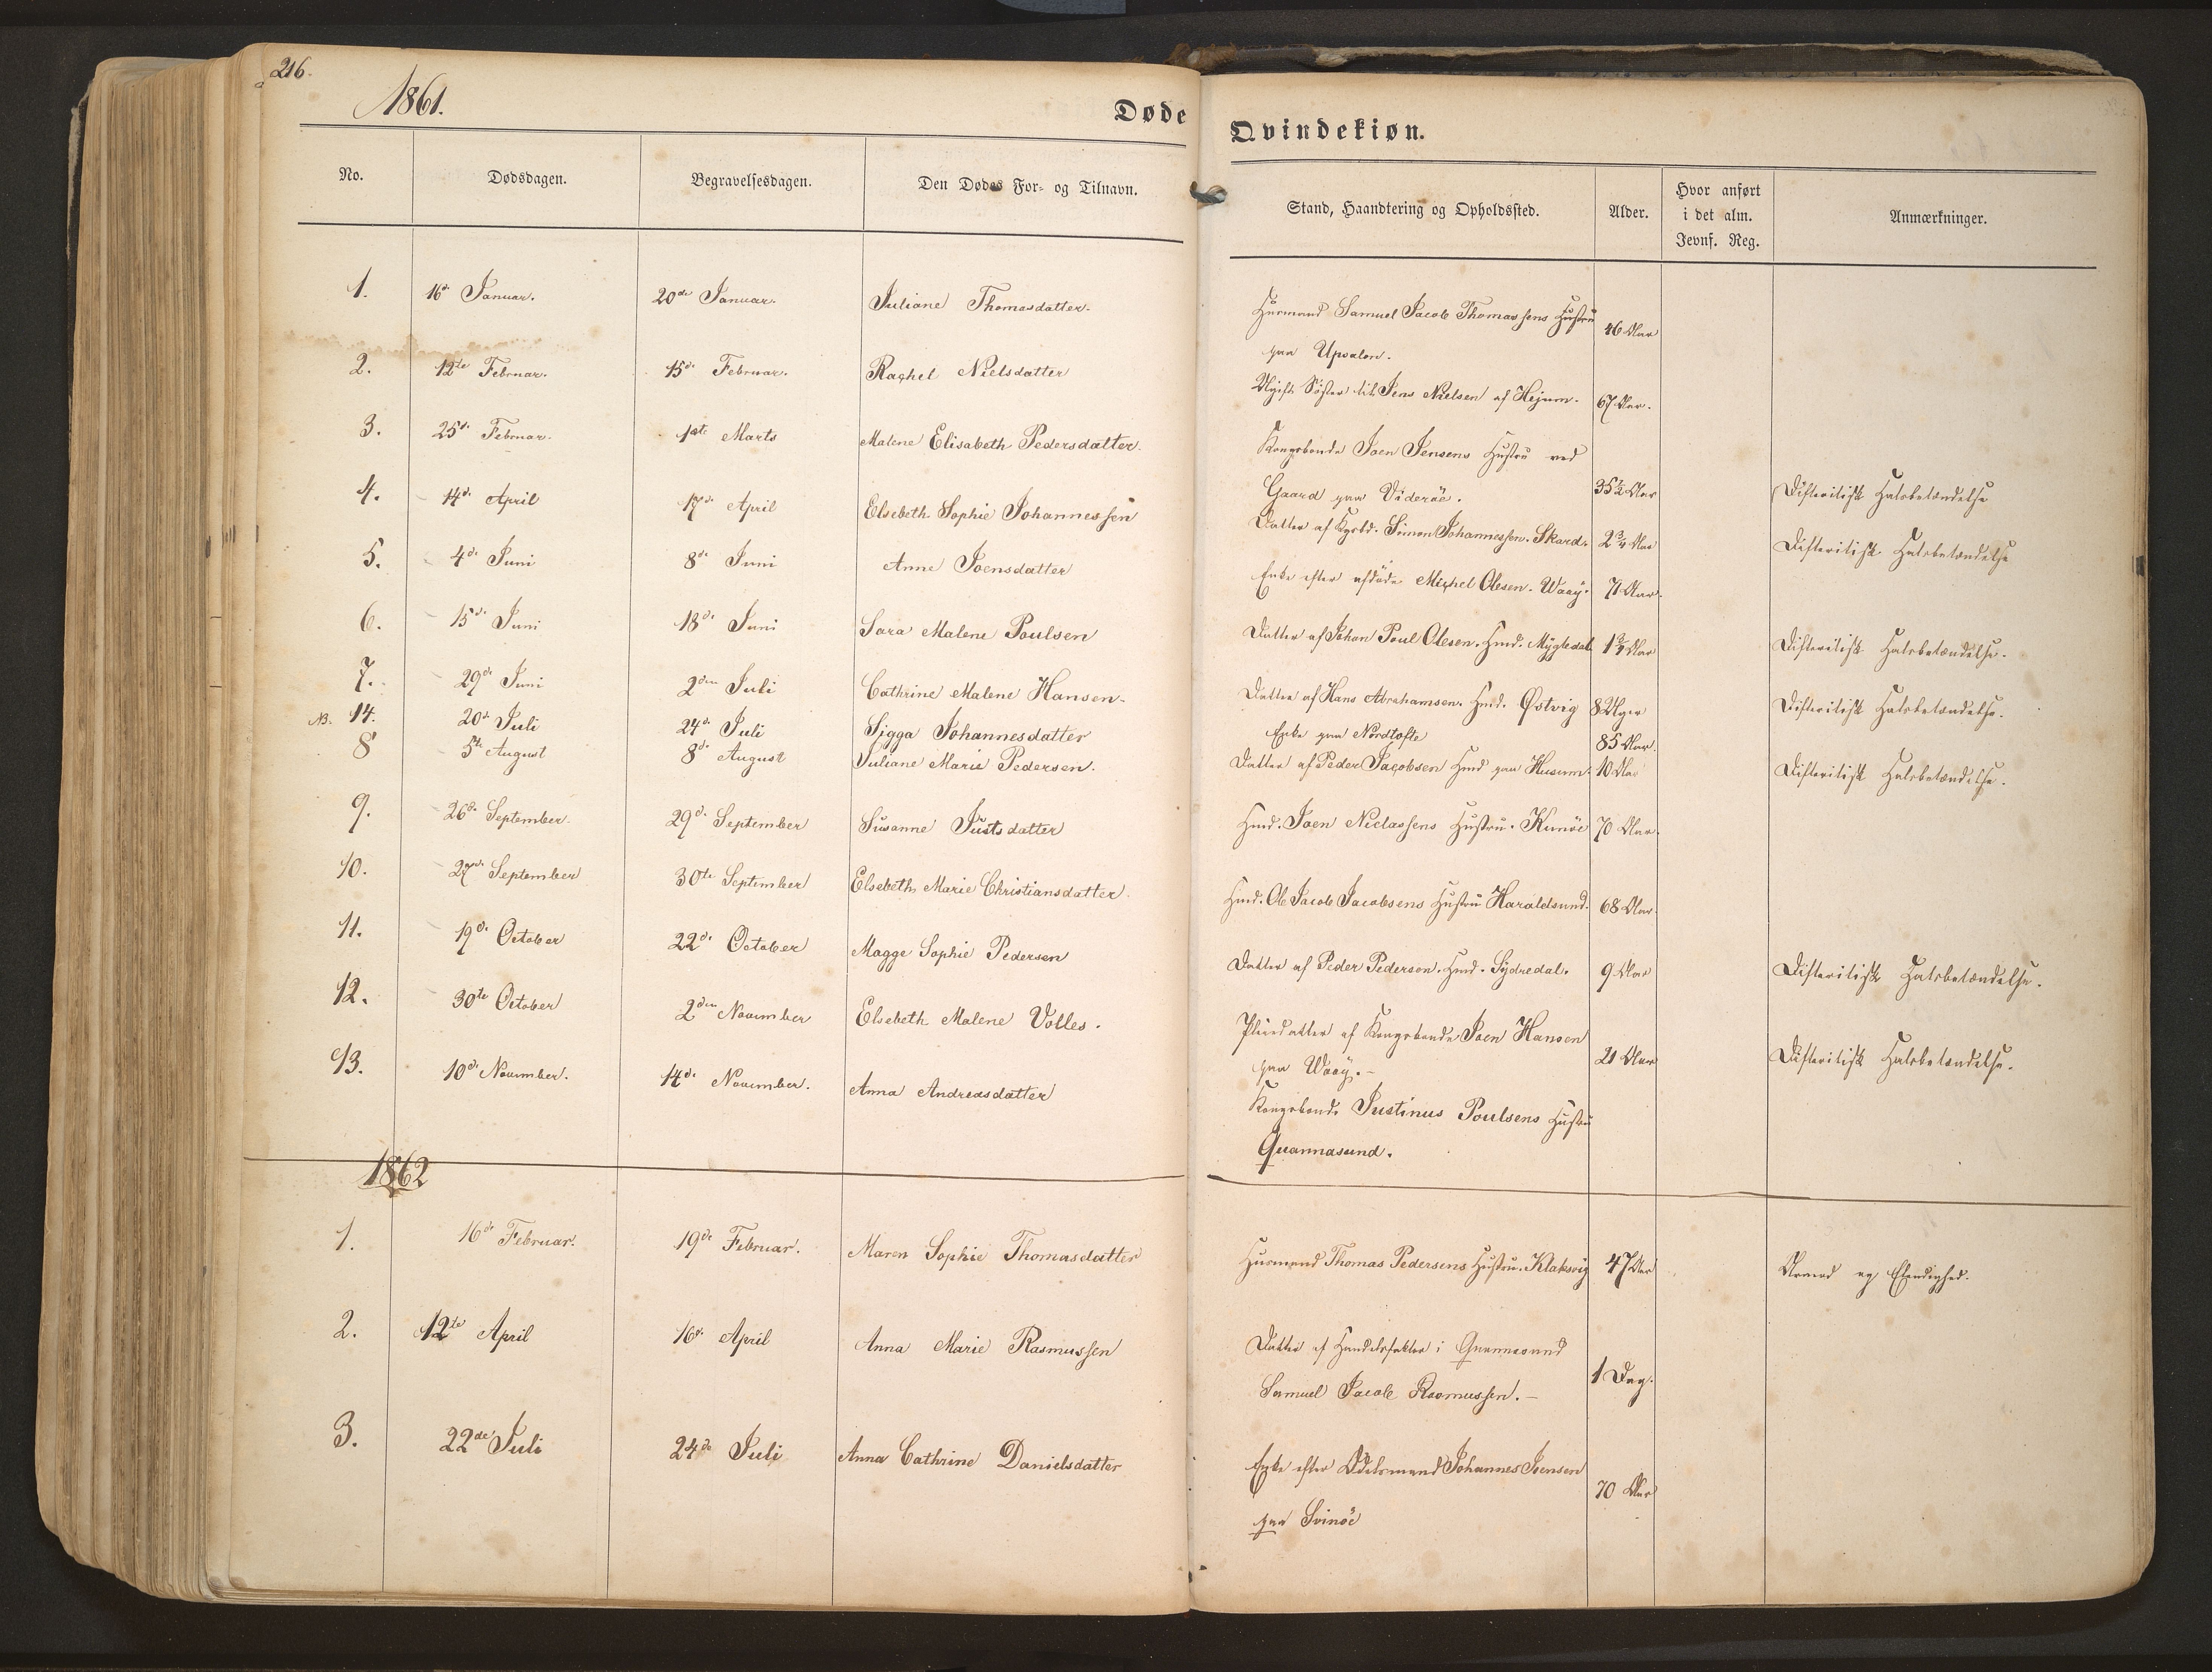 216.
1861.
Døde Qvindekiøn.
No. Dødsdagen. Begravelsesdagen. Den Dødes For- og Tilnavn. Stand, Haandtering og Opholdssted. Alder. Hvor anført i det alm. Jevnf. Reg. Anmærkninger.
1. 16de Januar. 20de Januar. Juliane Thomasdatter. Huusmand Samuel Jacob Thomassens Hustru 46 Aar
paa Upsalen.
2. 12te Februar. 15de Februar. Rachel Nielsdatter Ugift Søster til Jens Nielsen af Hejum. 67 Aar.
3. 25de Februar. 1ste Marts Malene Elisabeth Pedersdatter. Kongsbonde Joen Jensens Hustru ved
Gaard paa Viderøe. 35½ Aar Difteritisk Halsbetændelse
4. 14de April 17de April Elsebeth Sophie Johannessen Datter af Kgsbd. Simon Johannessen. Skard. 2¾ Aar Difteritisk Halsbetændelse
5. 4de Juni 8de Juni Anne Joensdatter Enke efter afdøde Michel Olesen. Waaÿ. 71 Aar.
6. 15de Juni 18de Juni Sara Malene Poulsen Datter af Johan Poul Olesen. Hmd. Mygledal 1¾ Aar Difteritisk Halsbetændelse.
7. 29de Juni 2den Juli Cathrine Malene Hansen. Datter af Hans Abrahamsen. Hmd. Østvig 8 Uger Difteritisk Halsbetændelse.
NB. 14. 20de Juli 24de Juli Sigga Johannesdatter Enke paa Nordtofte 85 Aar.
8 5te August 8de August Juliane Marie Pedersen. Datter af Peder Jacobsen Hmd paa Husum. 10 Aar Difteritisk Halsbetændelse.
9. 26de September. 29de September Susanne Justsdatter Hmd. Joen Niclassens Hustru. Kunøe 70 Aar.
10. 27de September 30te September Elsebeth Marie Christiansdatter. Hmd. Ole Jacob Jacobsens Hustru Haraldsund. 68 Aar.
11. 19de October 22de October Magge Sophie Pedersen Datter af Peder Pedersen. Hmd. Sydredal. 9 Aar Difteritisk Halsbetændelse.
12. 30te October 2den November Elsebeth Malene Volles. Pleiedatter af Kongsbonde Joen Hansen
paa Waaÿ. 21 Aar Difteritisk Halsbetændelse.
13. 10de November. 14de November. Anna Andreasdatter Kongsbonde Justinus Poulsens Hustru
Quannasund.
1862
1. 16de Februar. 19de Februar. Maren Sophie Thomasdatter Huusmand Thomas Pedersens Hustru. Klaksvig 47 Aar Armod og Elendighed.
2. 12te April 16de April Anna Marie Rasmussen Datter af Handelsfaktor i Quannesund
Samuel Jacob Rasmussen. 1 Dag.
3. 22de Juli 24de Juli Anna Cathrine Danielsdatter Enke efter Odelsmand Johannes Joensen
paa Svinöe 70 Aar